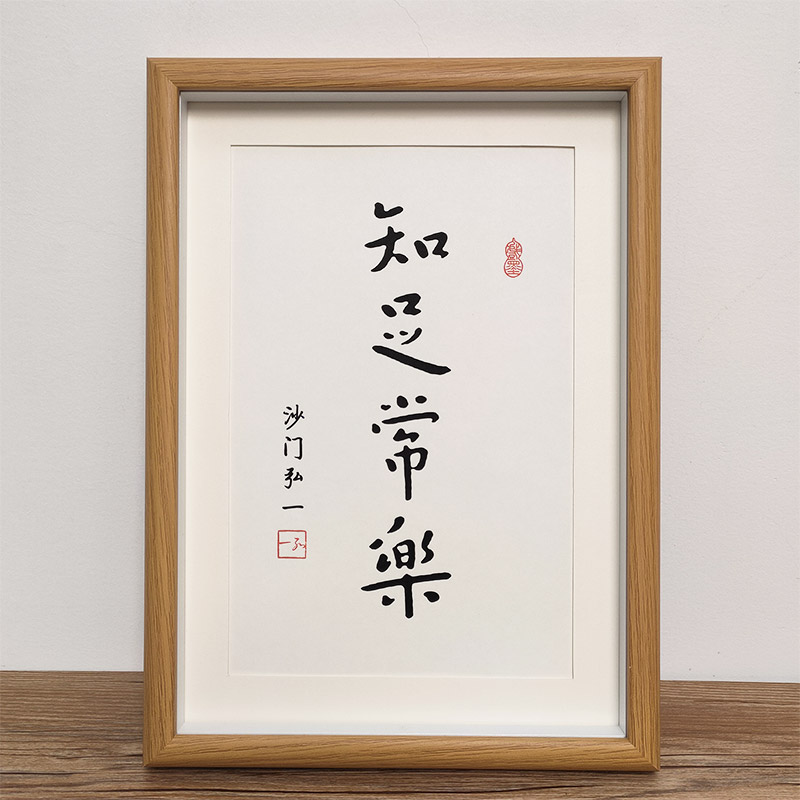 知足常樂
沙门弘一
弘一